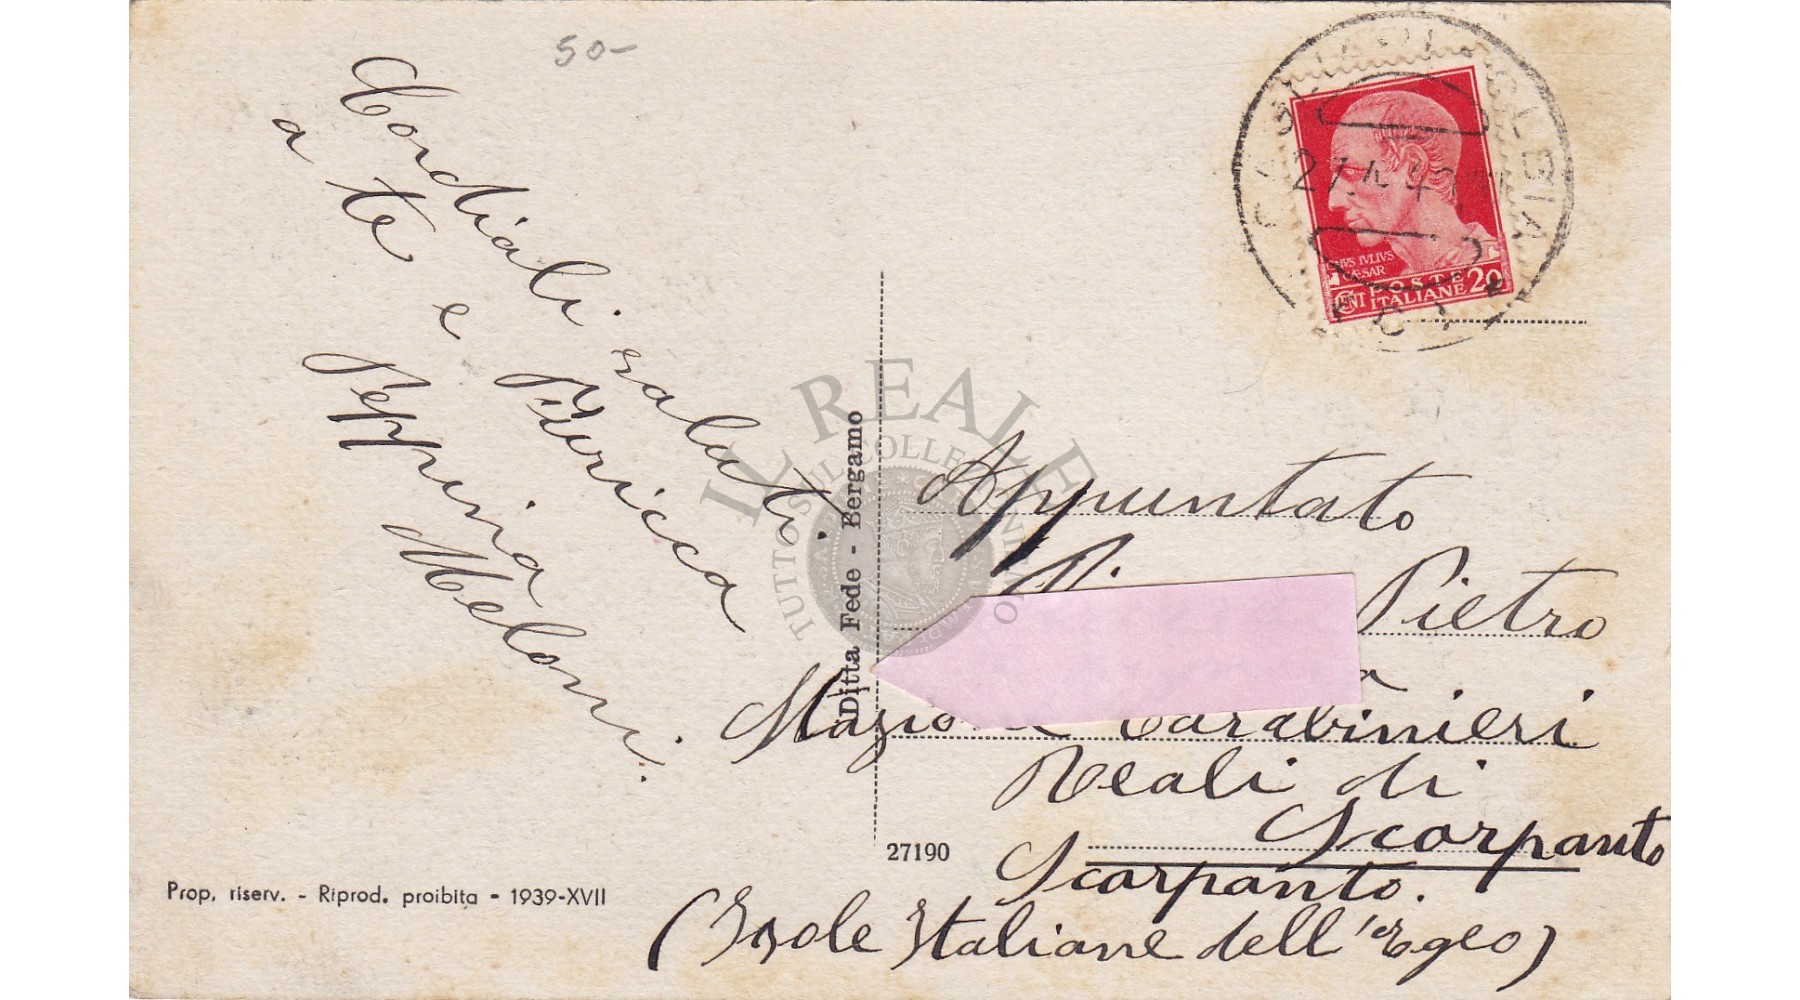 50-
Cordiali saluti
a te e Piericca
Peppina
Meloni.
Prop. riserv. - Riprod. proibita - 1939-XVII
Ditta Fede - Bergamo
27190
IVLIVS
CAESAR
POSTE
CENT ITALIANE 20
IL REALE
TUTTO SUL COLLEZIONISMO
Appuntato
Pietro
Carabinieri
Reali di
Scorpanto
Scarpanto.
(Isole Italiane dell'Egeo)